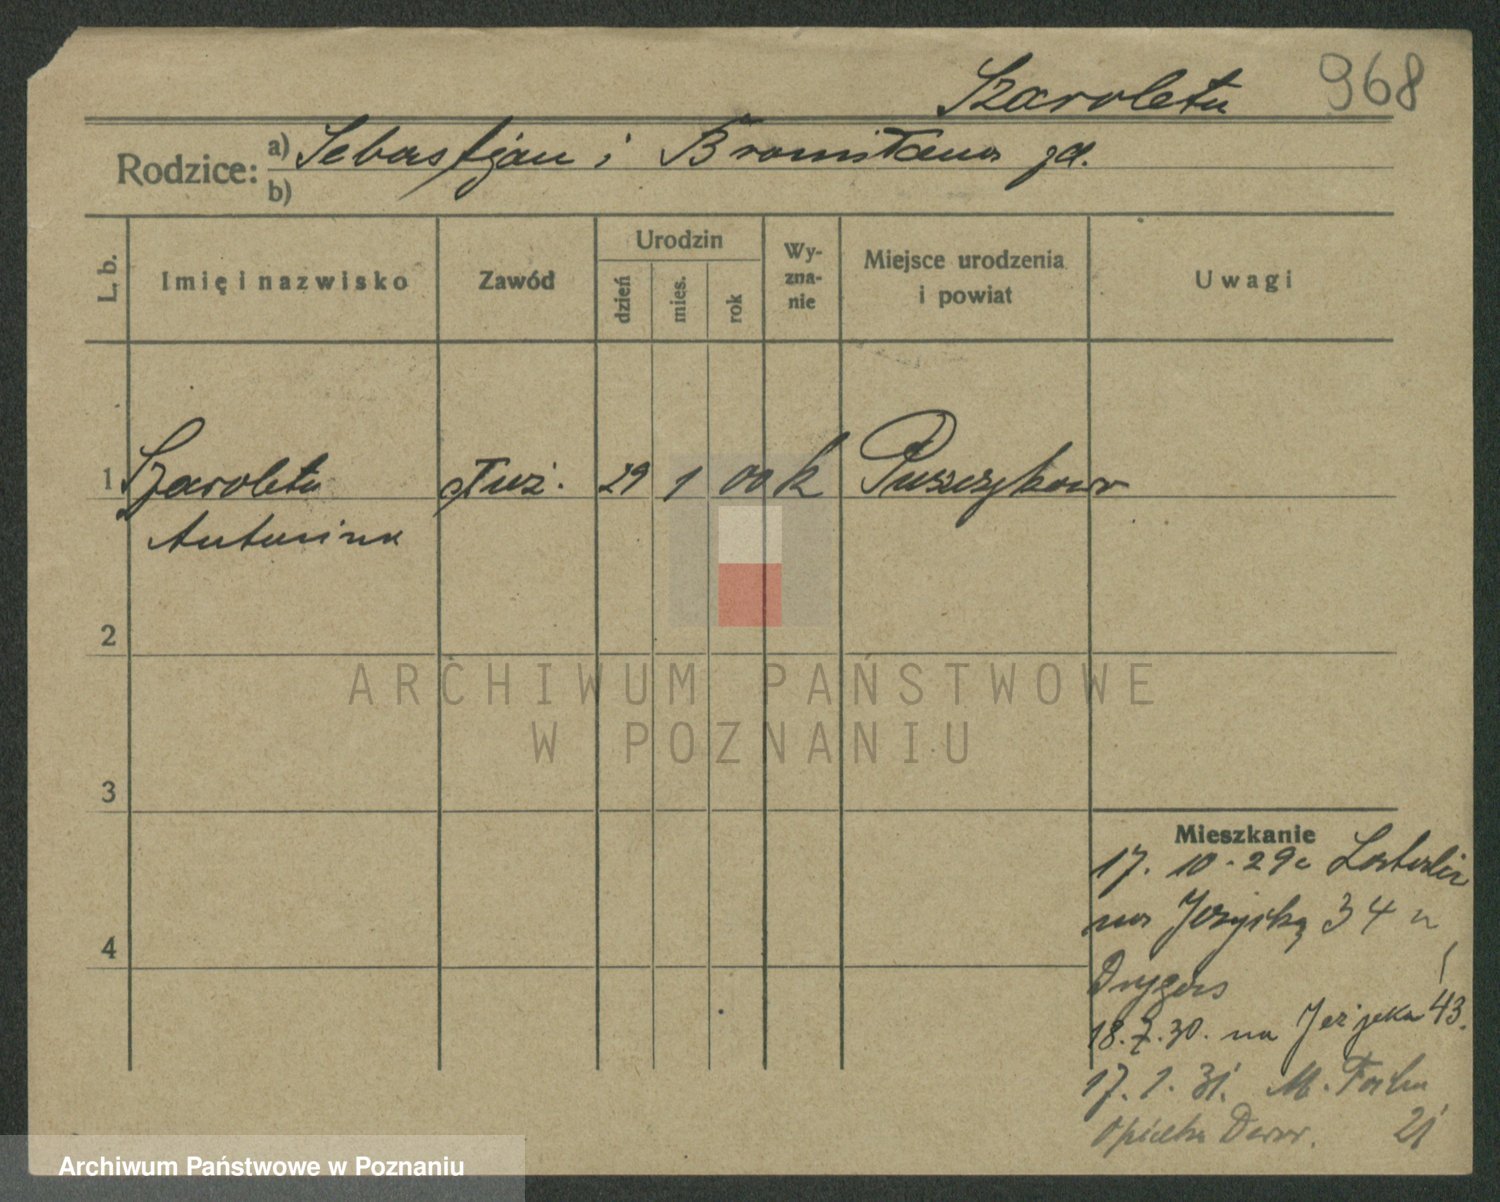 Szaroleta 968
Rodzice: a) Sebastjan i Bronisława zd.
b)
L. b. Imię i nazwisko Zawód Urodzin dzień mies. rok Wyznanie Miejsce urodzenia i powiat Uwagi
1 Szaroleta służ. 29 1 00 k Puszczykowo
Antonina
2
3
4
Mieszkanie
17. 10. 29
na 34 u
18. 7. 30. na 43.
17. 1. 31. M. Focha
Opieka Dwor. 21
ARCHIWUM PAŃSTWOWE
W POZNANIU
Archiwum Państwowe w Poznaniu